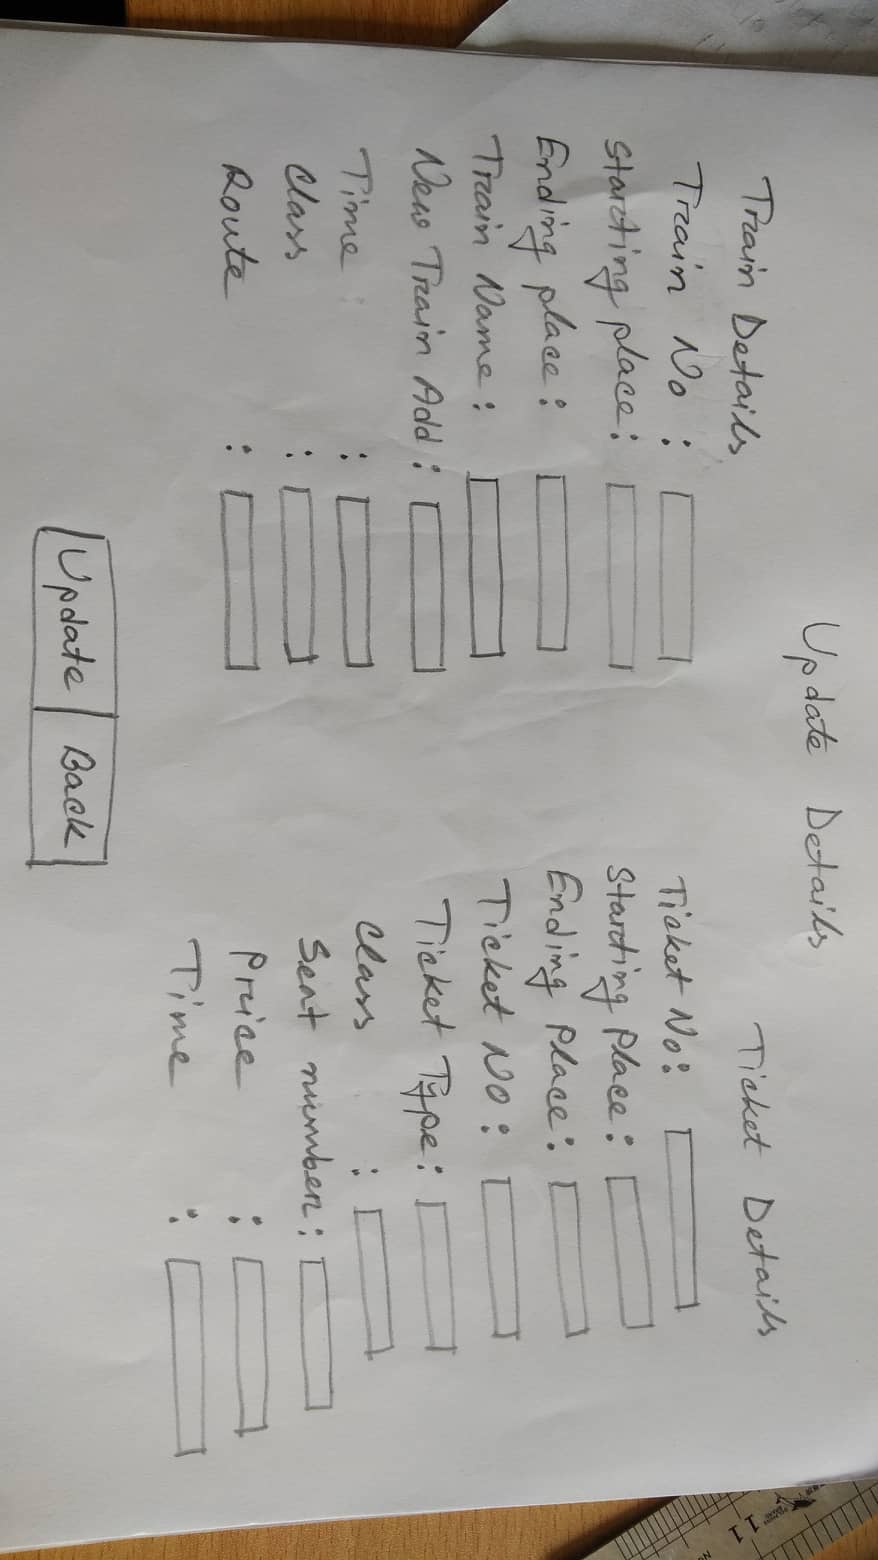 Update Details
Train Details
Train No :
Starting place:
Ending place:
Train Name:
New Train Add:
Time :
Class :
Route :
Ticket Details
Ticket No:
Starting Place:
Ending Place:
Ticket NO:
Ticket Type:
Class :
Seat number:
Price :
Time :
Update Back
11